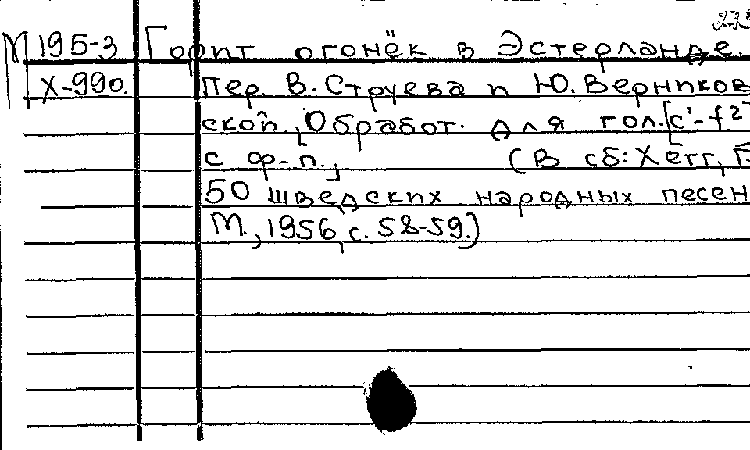 М195-3 Горит огонёк в Эстерланде.
Х-990. Пер. В. Струева и Ю. Верников
ской, [Обработ. для гол. [c'-f²]
с ф-п.] (В сб: Хегг, Г.
50 шведских народных песен
М., 1956, с. 58-59.)